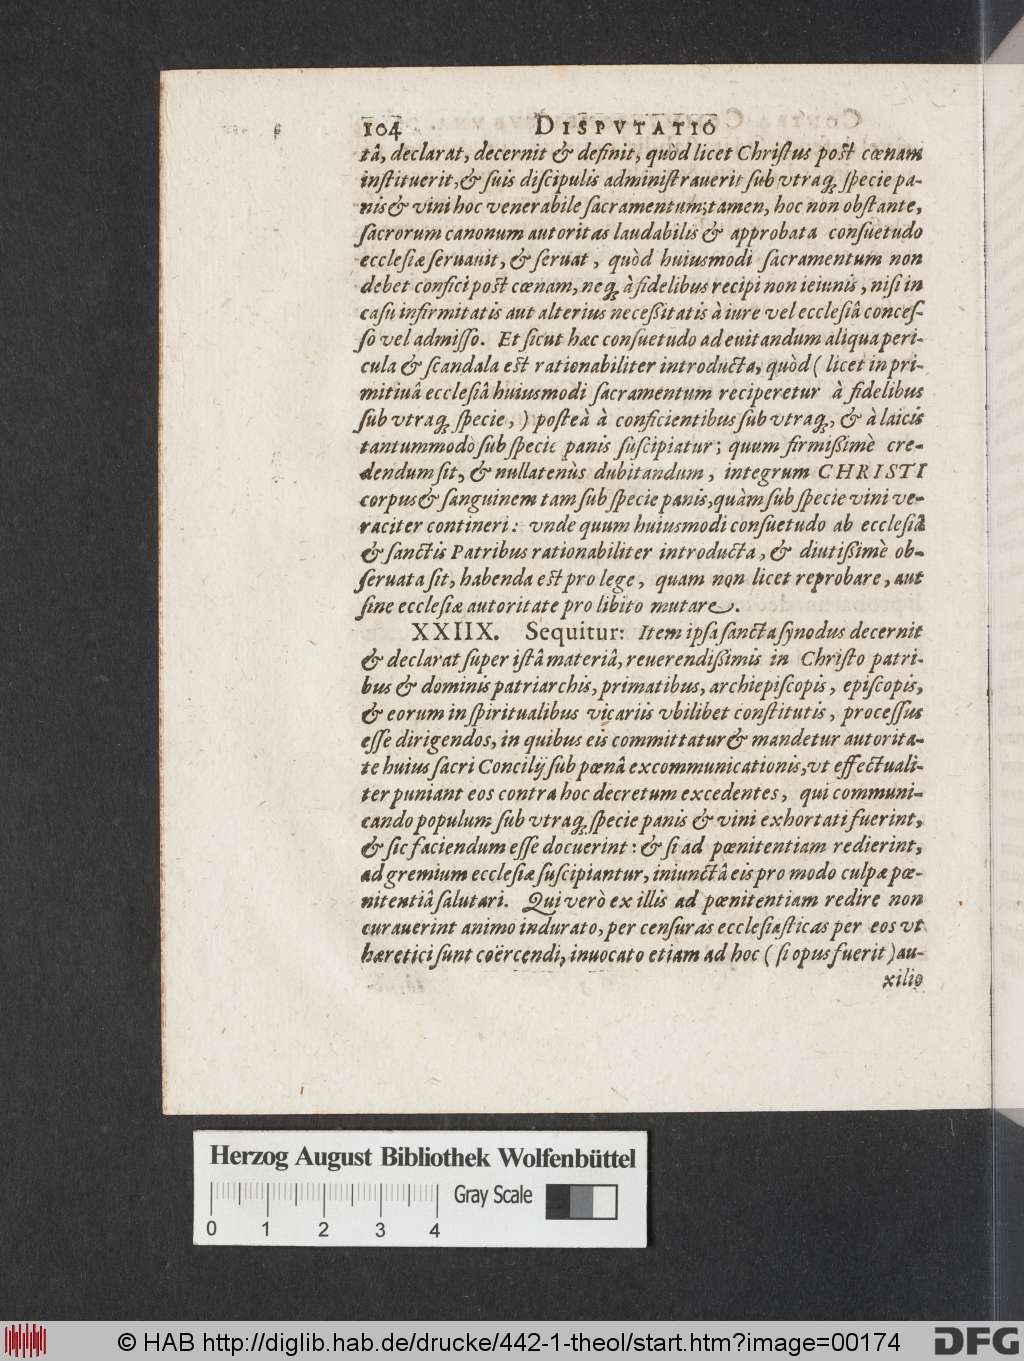 104 DISPVTATIO
tâ, declarat, decernit & definit, quòd licet Christus post cœnam
instituerit, & suis discipulis administrauerit sub vtraq; specie pa-
nis & vini hoc venerabile sacramentum; tamen, hoc non obstante,
sacrorum canonum autoritas laudabilis & approbata consuetudo
ecclesiæ seruauit, & seruat, quòd huiusmodi sacramentum non
debet confici post cœnam, neq; à fidelibus recipi non ieiunis, nisi in
casu infirmitatis aut alterius necessitatis à iure vel ecclesiâ conces-
so vel admisso. Et sicut hæc consuetudo ad euitandum aliqua peri-
cula & scandala est rationabiliter introducta, quòd ( licet in pri-
mitiuâ ecclesiâ huiusmodi sacramentum reciperetur à fidelibus
sub vtraq; specie, ) posteà à conficientibus sub vtraq;, & à laicis
tantummodò sub specie panis suscipiatur; quum firmissimè cre-
dendum sit, & nullatenùs dubitandum, integrum CHRISTI
corpus & sanguinem tam sub specie panis, quàm sub specie vini ve-
raciter contineri: vnde quum huiusmodi consuetudo ab ecclesiâ
& sanctis Patribus rationabiliter introducta, & diutissimè ob-
seruata sit, habenda est pro lege, quam non licet reprobare, aut
sine ecclesiæ autoritate pro libito mutare.
XXIIX. Sequitur: Item ipsa sancta synodus decernit
& declarat super istâ materiâ, reuerendissimis in Christo patri-
bus & dominis patriarchis, primatibus, archiepiscopis, episcopis,
& eorum in spiritualibus vicariis vbilibet constitutis, processus
esse dirigendos, in quibus eis committatur & mandetur autorita-
te huius sacri Concilij sub pœnâ excommunicationis, vt effectuali-
ter puniant eos contra hoc decretum excedentes, qui communi-
cando populum sub vtraq; specie panis & vini exhortati fuerint,
& sic faciendum esse docuerint: & si ad pœnitentiam redierint,
ad gremium ecclesiæ suscipiantur, iniunctâ eis pro modo culpæ pœ-
nitentiâ salutari. Qui verò ex illis ad pœnitentiam redire non
curauerint animo indurato, per censuras ecclesiasticas per eos vt
hæretici sunt coërcendi, inuocato etiam ad hoc ( si opus fuerit ) au-
xilio
Herzog August Bibliothek Wolfenbüttel
Gray Scale
0 1 2 3 4
© HAB http://diglib.hab.de/drucke/442-1-theol/start.htm?image=00174
DFG